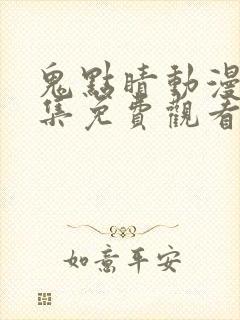 鬼點睛動漫
集免費觀看
如意平安